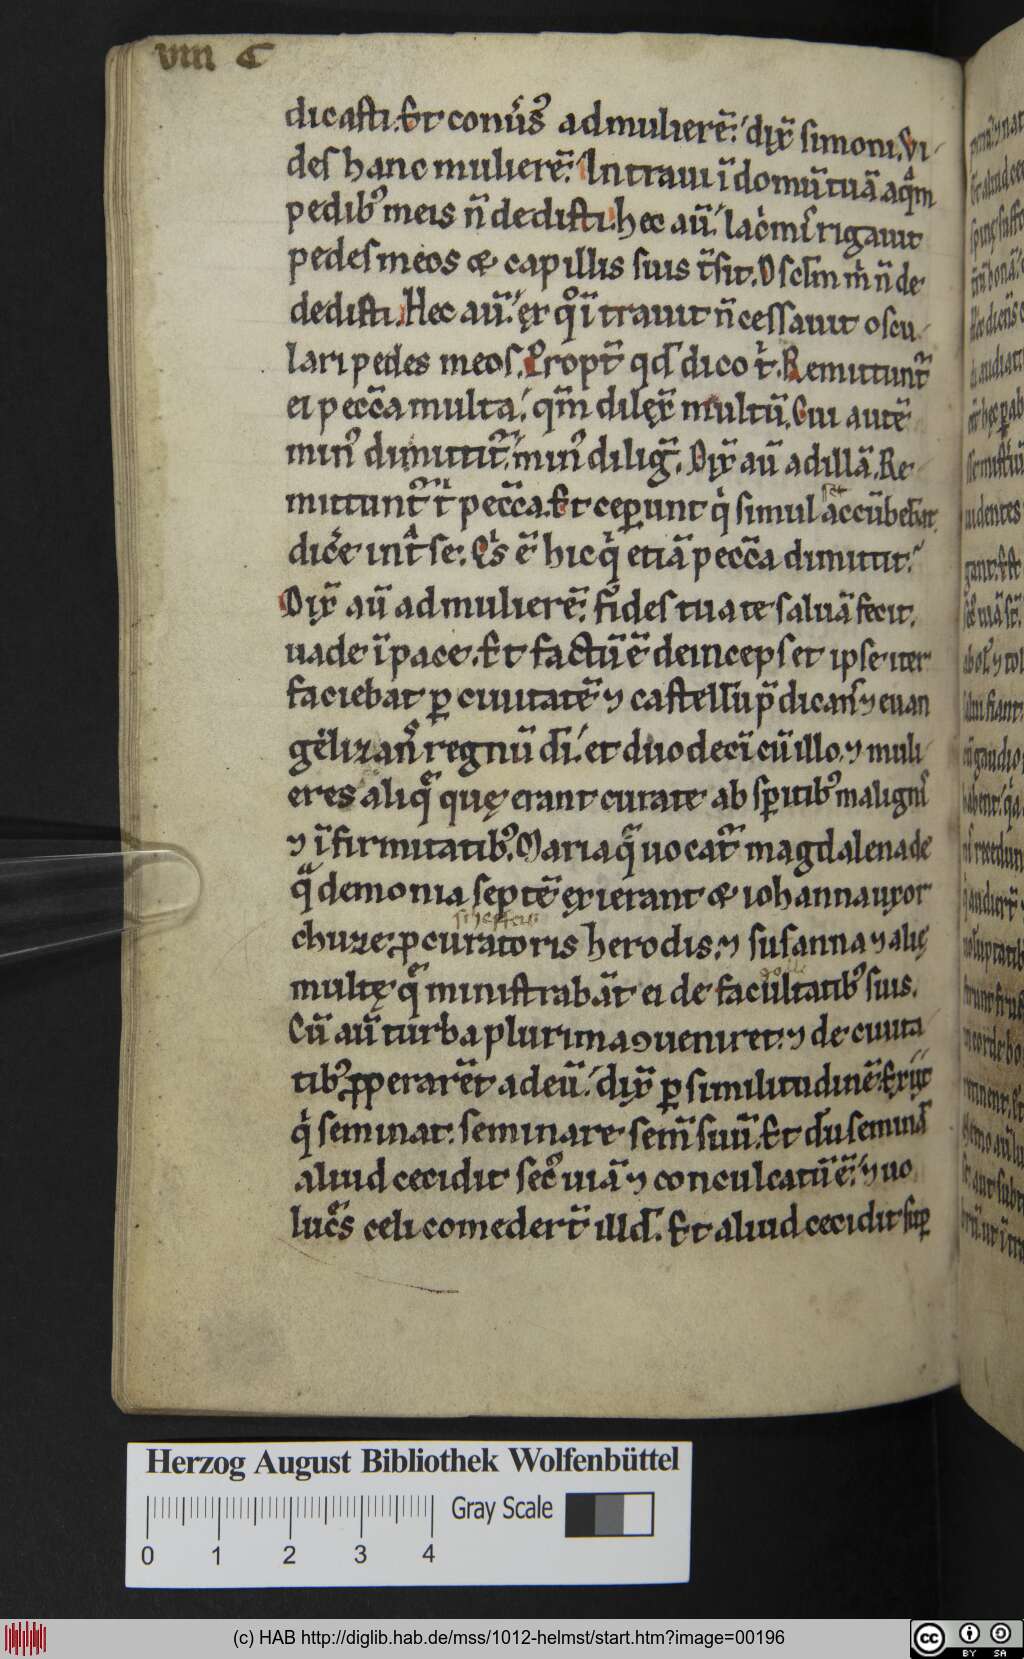 viiii C
dicasti. Et conũs᷒ ad mulierē. dix̃ simoni. Vi
des hanc mulierē. Intraui ī domū tuā aqͣm
pedib᷒ meis ñ dedisti. hec aū. lac̍mis rigauit
pedes meos & capillis suis t̃sit. Osculm̄ m̍ ñ de
dedisti. Hec aū. ex qͦ ītrauit ñ cessauit oscu
lari pedes meos. Propt̃ qd̄ dico t̍. Remittunt᷑
ei pecc̄a multa. qm̄ dilex̃ multū. Cui autē
min᷒ dimittit᷑. min᷒ dilig̃. Dix̃ aū ad illā. Re
mittunt᷑ t̍ pecc̄a. Et ceperunt q̍ simul accūbebāt
dic̃e int̃ se. Qͥs ē hic q̍ etiā pecc̄a dimittit.
Dix̃ aū ad mulierē. fides tua te saluā fecit.
uade ī pace. Et factū ē deinceps et ipse iter
faciebat ꝑ ciuitatē ⁊ castellū p̄dicans ⁊ euan
gelizans regnū dī. et duodecī cū illo. ⁊ muli
eres aliqͣ quę erant curate ab sp̄itib᷒ malignis
⁊ īfirmitatib᷒. Maria qͣ uocat᷑ magdalena de
qͣ demonia septē exierant & iohanna uxor
scheffeni
chuze ꝓcuratoris herodis. ⁊ susanna ⁊ alię
multę qͣ ministrabāt ei de facultatib᷒ suis.
Cū aū turba plurima ꝯueniret. ⁊ de ciuita
tib᷒ ꝓperarēt ad eū. dix̃ ꝑ similitudinē. Exiit
q̍ seminat. seminare sem̄ suū. Et dū seminat
aliud cecidit sec᷒ uiā ⁊ conculcatū ē. ⁊ uo
luc̃s celi comedert̄ illd̄. Et aliud cecidit suꝑ
Herzog August Bibliothek Wolfenbüttel
Gray Scale
0 1 2 3 4
(c) HAB http://diglib.hab.de/mss/1012-helmst/start.htm?image=00196
cc BY SA